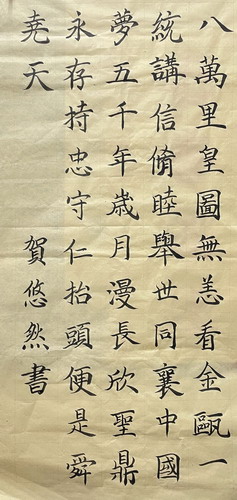 八萬里皇圖無恙看金甌一
統講信脩睦舉世同襄中國
夢五千年歲月漫長欣聖鼎
永存持忠守仁抬頭便是舜
堯天
賀悠然書